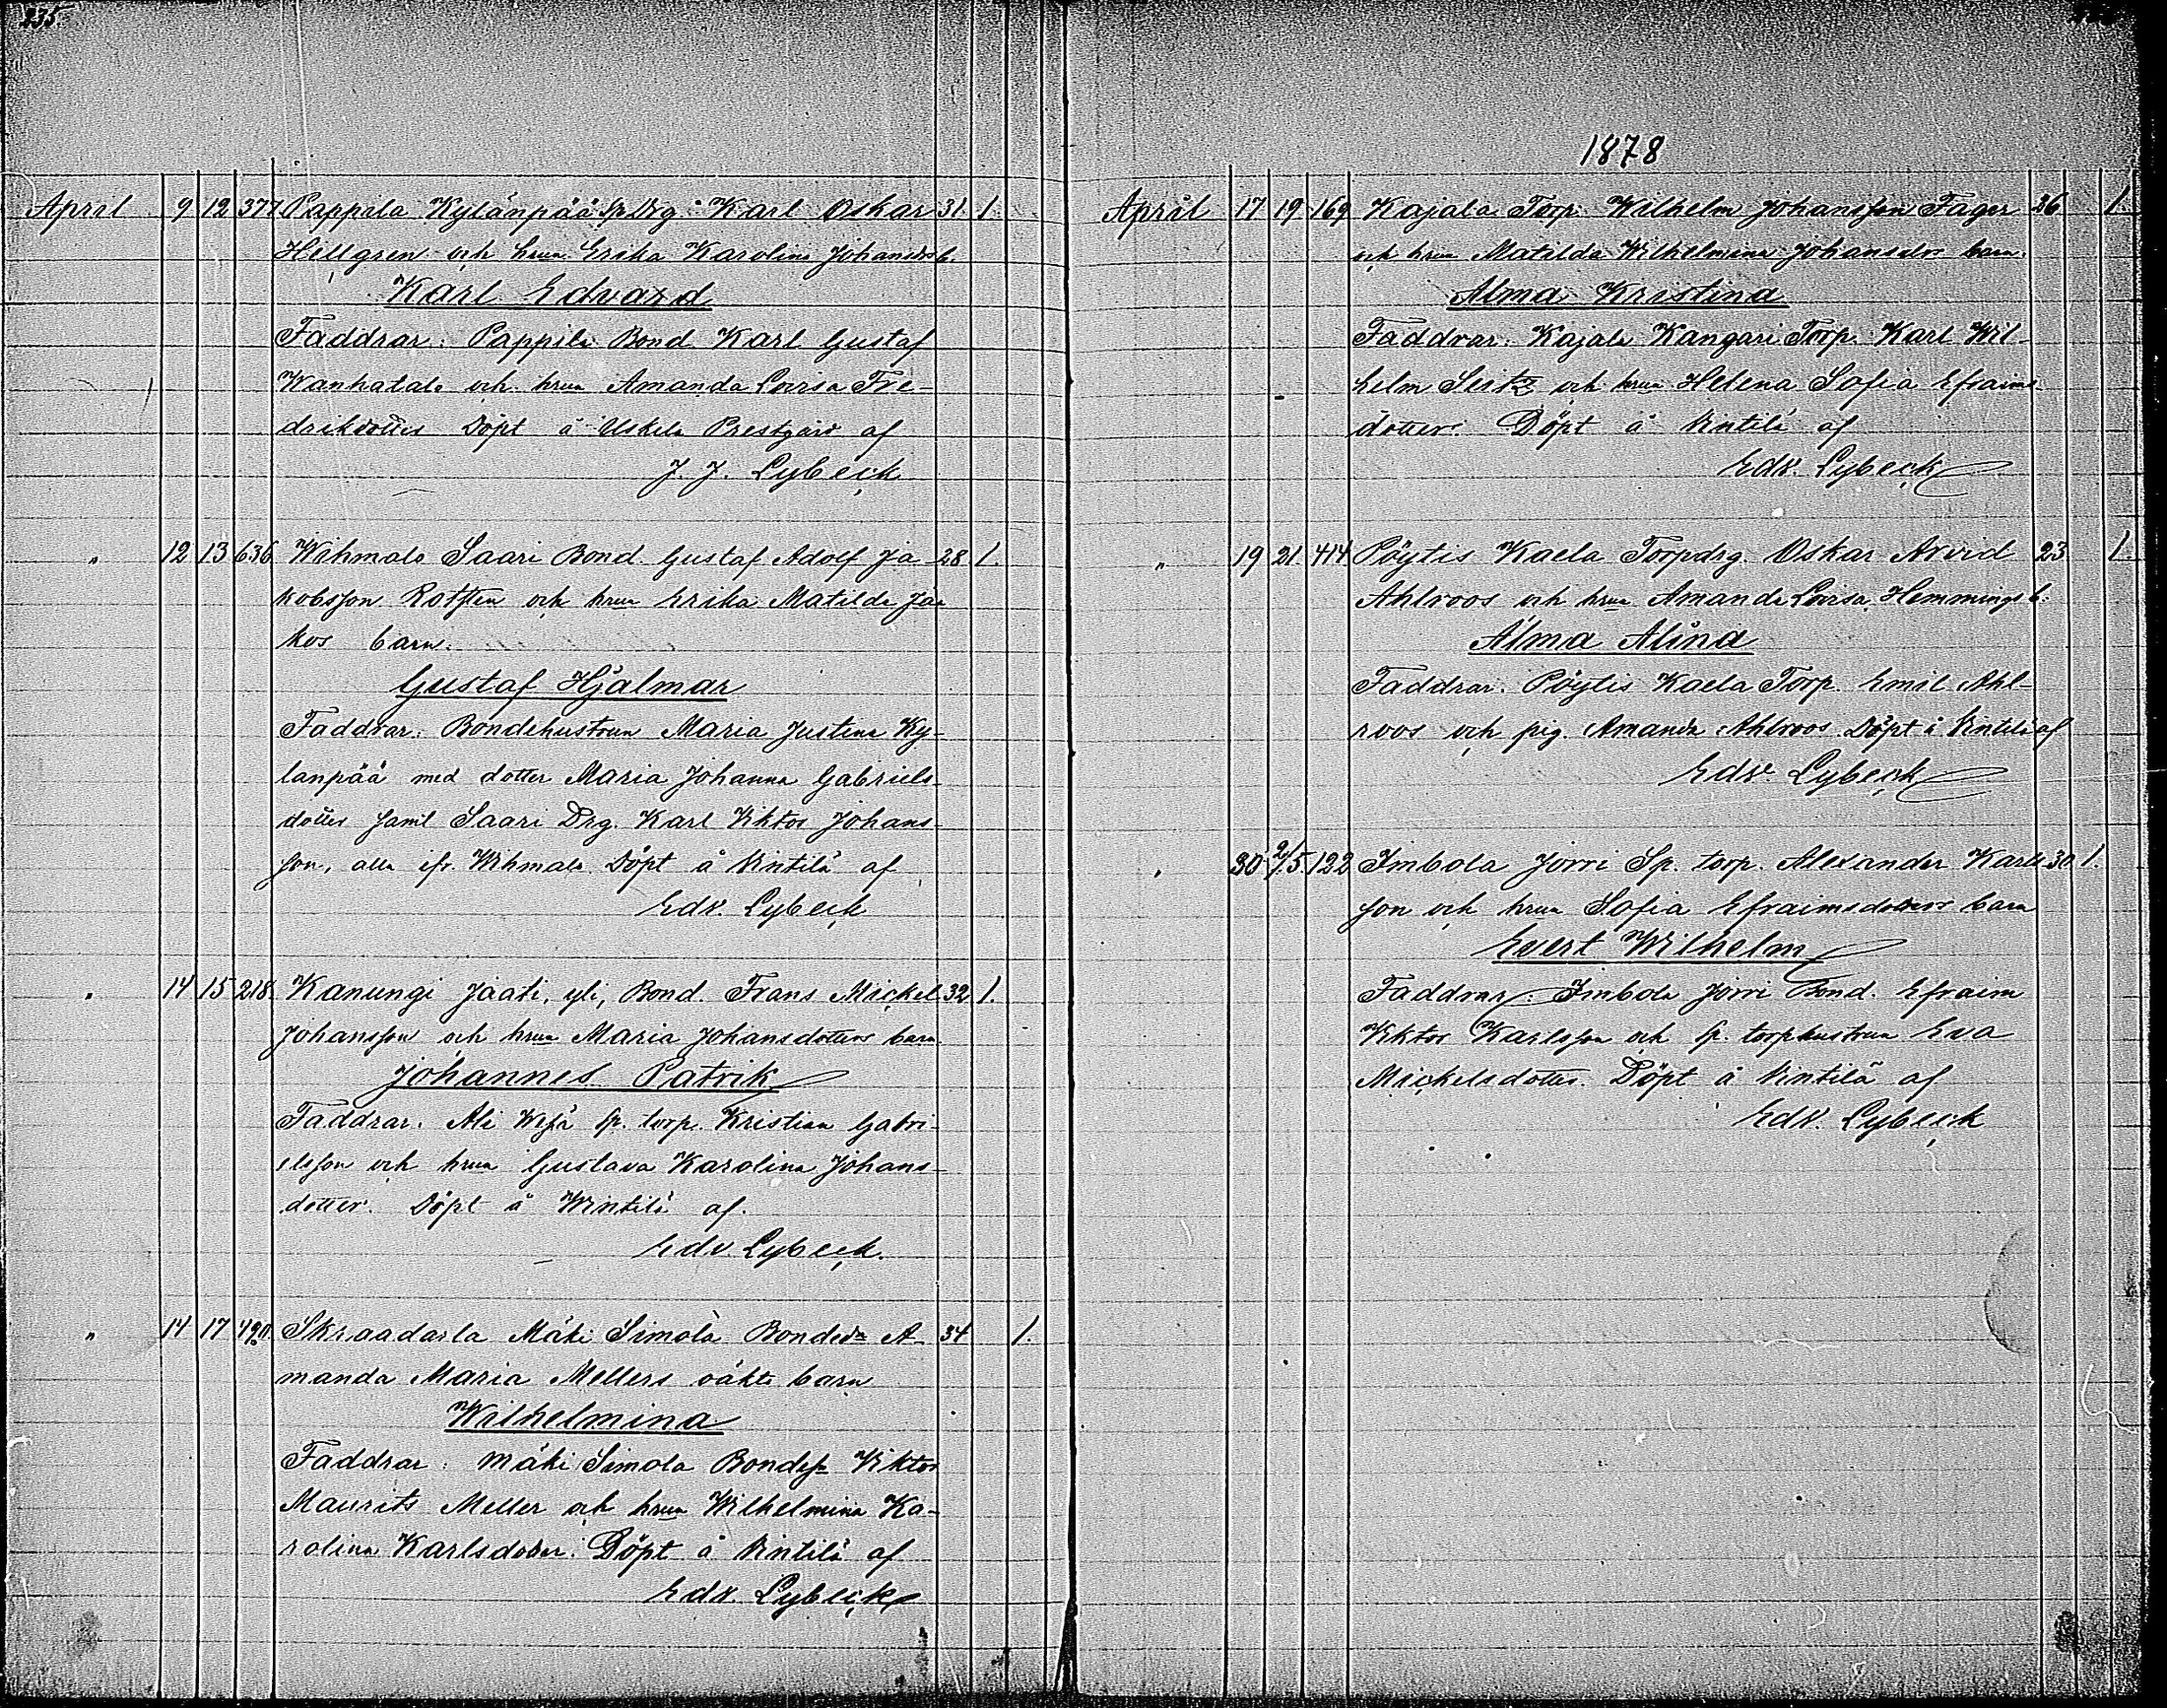 235
April 9 12 377 Pappila Kylänpää Sp Drg. Karl Oskar 31 1.
Hellgren och hrun Erika Karolina Johansdrs b.
Karl Edvard
Faddrar: Pappila Bond Karl Gustaf
Wanhatalo och hrun Amanda Lovisa Fre-
driksdotter Döpt å Uskela Prestgård af
J. J. Lybeck
" 12 13 636 Wihmalo Saari Bond. Gustaf Adolf Ja- 28 1.
kobsson Rotsten och hrun Erika Matilda Jaa
kos barn.
Gustaf Hjalmar
Faddrar: Bondehustrun Maria Justina Ky-
lanpää med dotter Maria Johanna Gabriels-
dotter samt Saari Drg. Karl Viktor Johans-
son, alla ifr. Wihmalo. Döpt å Vintilä af
Edv. Lybeck
" 14 15 218. Kanungi Jaati, yli, Bond. Frans Mickel 32 1.
Johansson och hrun Maria Johansdotters barn
Johannes Patrik
Faddrar. Ali sp. torp. Kristian Gabri-
elsson och hrun Gustava Karolina Johans-
dotter. Döpt å Wintilä af.
Edv. Lybeck.
" 14 17 490. Skraadarla Mäki Simola Bondedr A- 34 1.
manda Maria Mellers oäkta barn
Wilhelmina
Faddrar: Mäki Simola Bondes. Viktor
Maurits Meller och hrun Wilhelmina Ka-
rolina Karlsdotter. Döpt å Vintilä af
Edv. Lybeck
1878
April 17 19 169 Kajala Torp. Wilhelm Johansson Fager 36 1.
och hrun Matilda Wilhelmina Johansdrs barn.
Alma Kristina
Faddrar. Kajala Kangari Torp. Karl Wil-
helm Seitz och hrun Helena Sofia Efraims-
dotter. Döpt å Vintilä af
Edv. Lybeck
" 19 21. 414 Pöytis Kaela Torpdrg. Oskar Arvid 23 1.
Ahlroos och hrun Amanda Lovisa Hemmings b.
Alma Alina
Faddrar. Pöytis Kaela Torp. Emil Ahl-
roos och pig. Amanda Ahlroos. Döpt å Vintilä af
Edv. Lybeck
" 30 2/5. 122 Inbola Jorri Sp. torp. Alexander Karls 30 1.
son och hrun Sofia Efraimsdotters barn
Evert Wilhelm
Faddrar. Inbola Jorri Bond. Efraim
Viktor Karlsson och sp. torphustrun Eva
Mickelsdotter. Döpt å Vintilä af
Edv. Lybeck